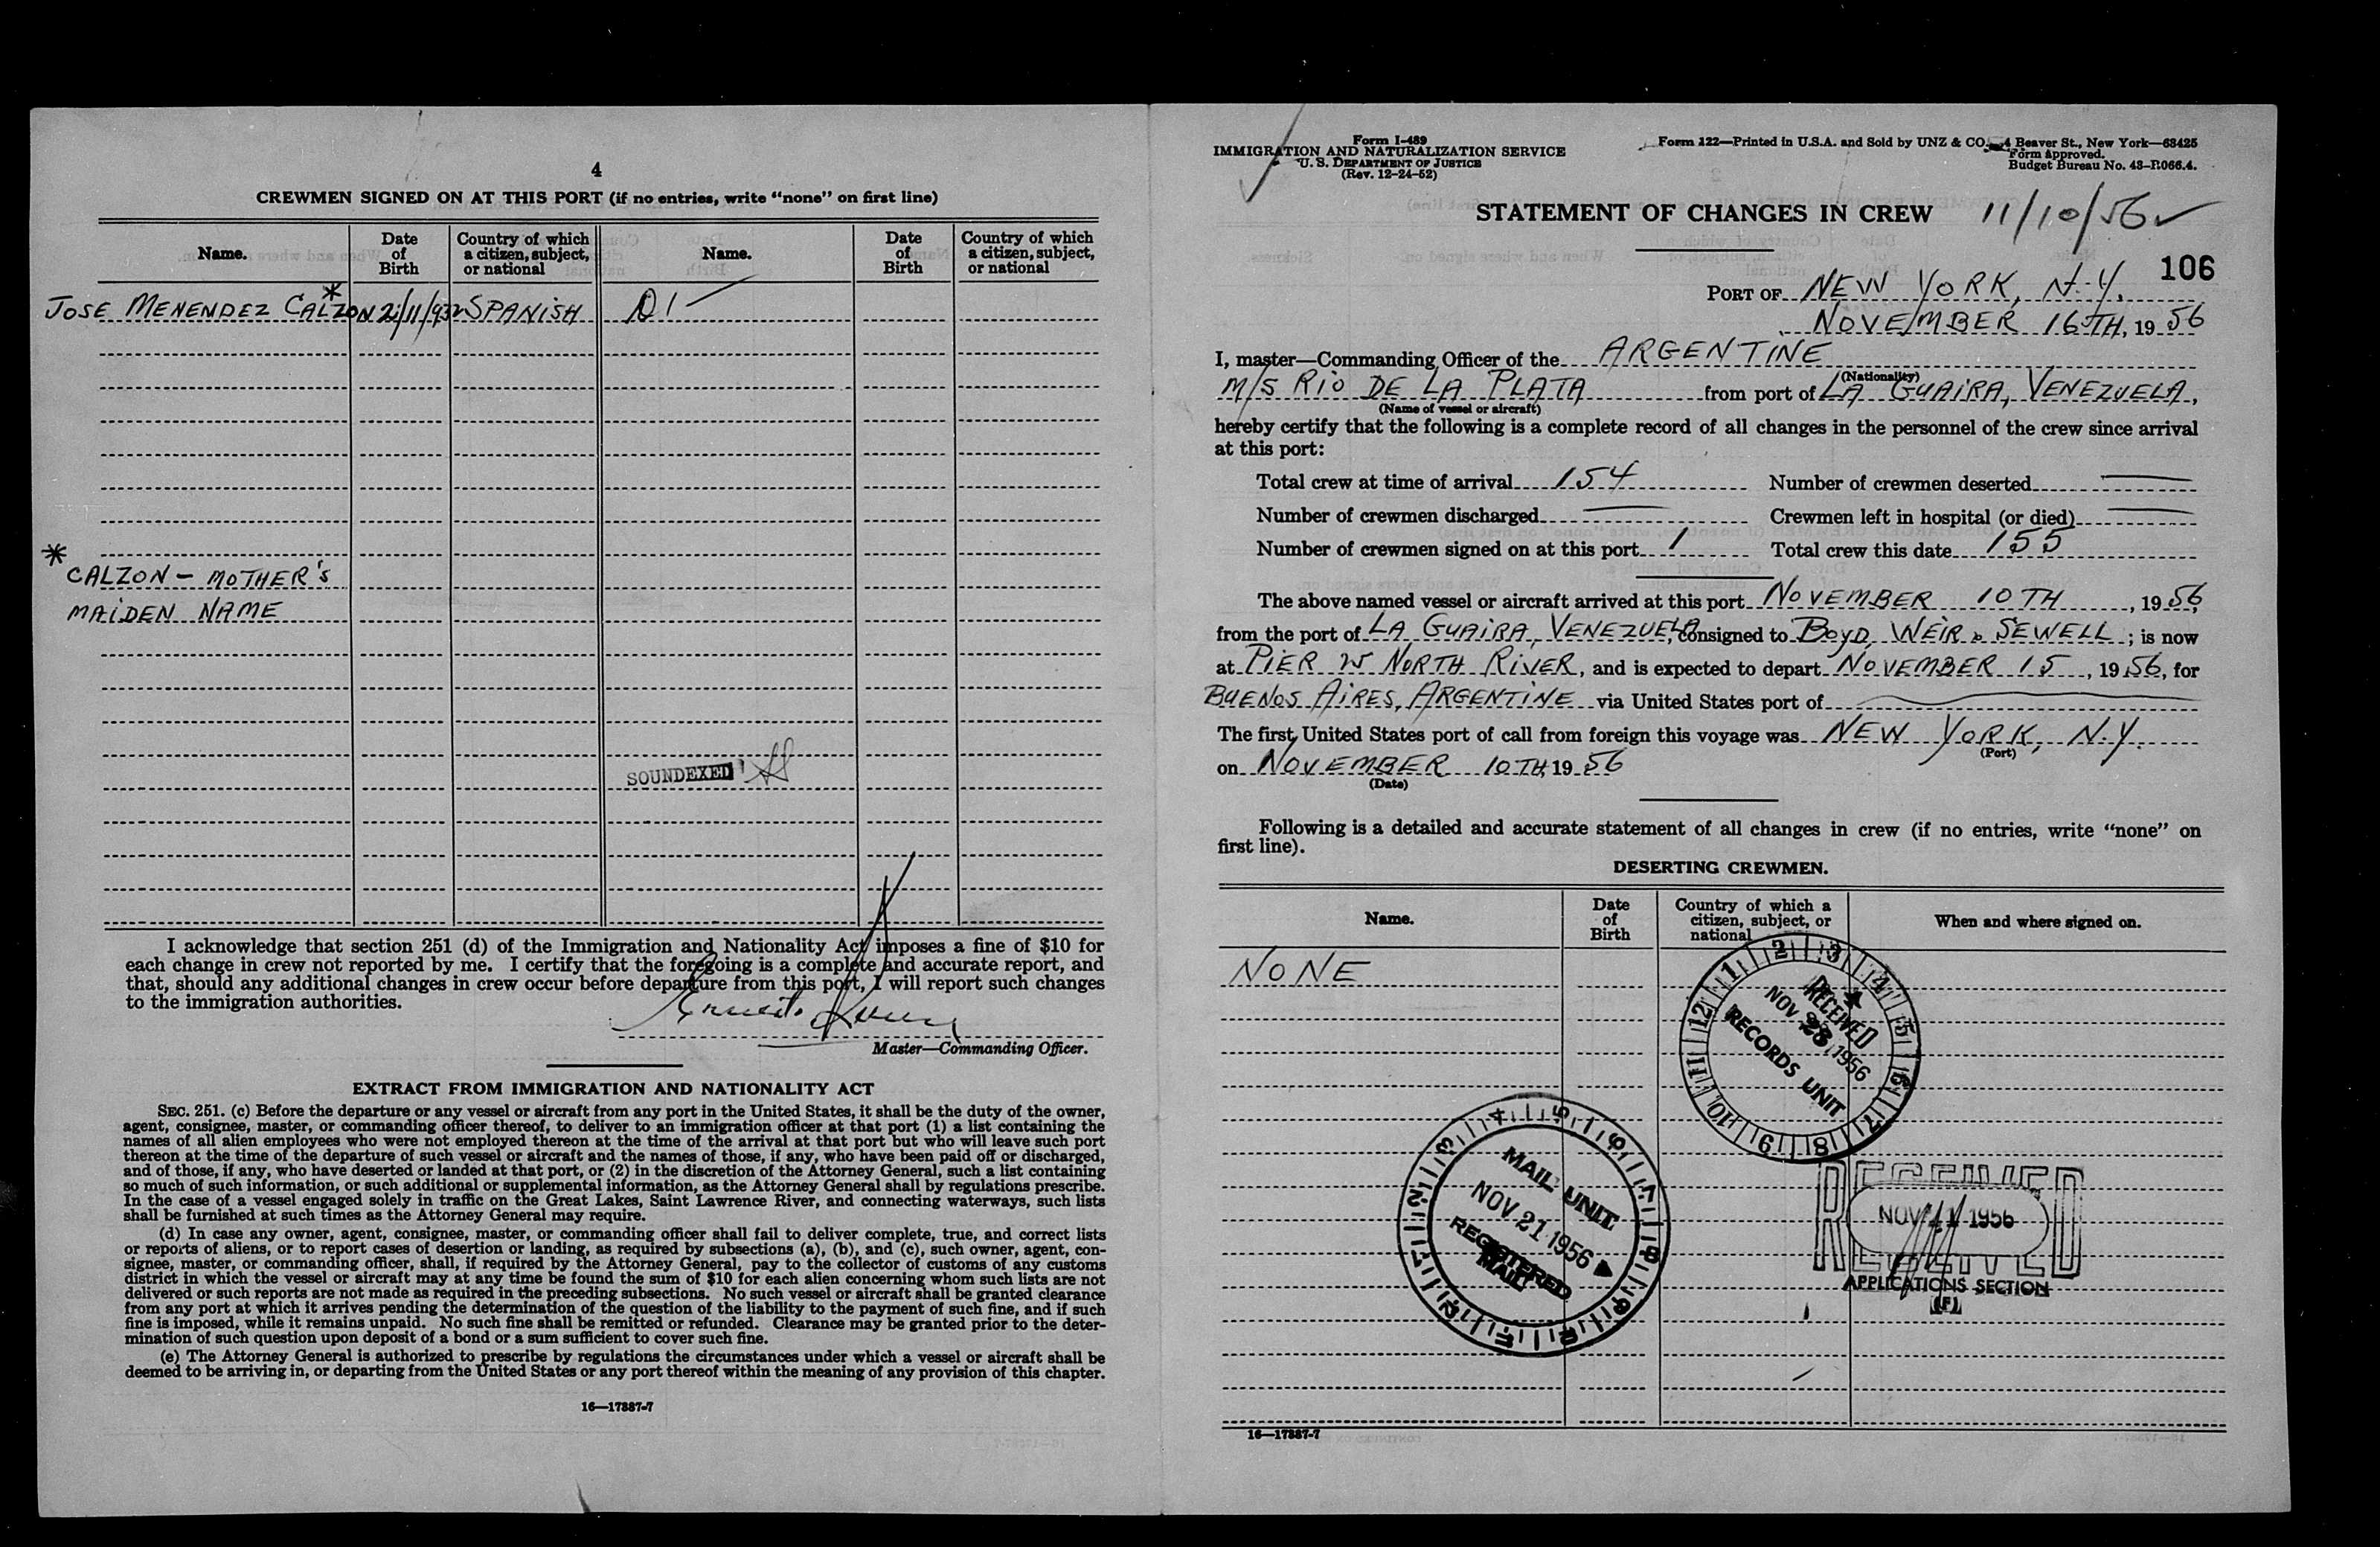 4
CREWMEN SIGNED ON AT THIS PORT (if no entries, write “none” on first line)
Name. Date of Birth Country of which a citizen, subject, or national Name. Date of Birth Country of which a citizen, subject, or national
JOSE MENENDEZ CALZON* SPANISH
*
CALZON – MOTHER's
MAIDEN NAME
SOUNDEXED
I acknowledge that section 251 (d) of the Immigration and Nationality Act imposes a fine of $10 for
each change in crew not reported by me. I certify that the foregoing is a complete and accurate report, and
that, should any additional changes in crew occur before departure from this port, I will report such changes
to the immigration authorities.
Master—Commanding Officer.
EXTRACT FROM IMMIGRATION AND NATIONALITY ACT
SEC. 251. (c) Before the departure or any vessel or aircraft from any port in the United States, it shall be the duty of the owner,
agent, consignee, master, or commanding officer thereof, to deliver to an immigration officer at that port (1) a list containing the
names of all alien employees who were not employed thereon at the time of the arrival at that port but who will leave such port
thereon at the time of the departure of such vessel or aircraft and the names of those, if any, who have been paid off or discharged,
and of those, if any, who have deserted or landed at that port, or (2) in the discretion of the Attorney General, such a list containing
so much of such information, or such additional or supplemental information, as the Attorney General shall by regulations prescribe.
In the case of a vessel engaged solely in traffic on the Great Lakes, Saint Lawrence River, and connecting waterways, such lists
shall be furnished at such times as the Attorney General may require.
(d) In case any owner, agent, consignee, master, or commanding officer shall fail to deliver complete, true, and correct lists
or reports of aliens, or to report cases of desertion or landing, as required by subsections (a), (b), and (c), such owner, agent, con-
signee, master, or commanding officer, shall, if required by the Attorney General, pay to the collector of customs of any customs
district in which the vessel or aircraft may at any time be found the sum of $10 for each alien concerning whom such lists are not
delivered or such reports are not made as required in the preceding subsections. No such vessel or aircraft shall be granted clearance
from any port at which it arrives pending the determination of the question of the liability to the payment of such fine, and if such
fine is imposed, while it remains unpaid. No such fine shall be remitted or refunded. Clearance may be granted prior to the deter-
mination of such question upon deposit of a bond or a sum sufficient to cover such fine.
(e) The Attorney General is authorized to prescribe by regulations the circumstances under which a vessel or aircraft shall be
deemed to be arriving in, or departing from the United States or any port thereof within the meaning of any provision of this chapter.
16—17887-7
Form I-489
IMMIGRATION AND NATURALIZATION SERVICE
U. S. DEPARTMENT OF JUSTICE
(Rev. 12-24-52)
Form 122—Printed in U.S.A. and Sold by UNZ & CO. Beaver St., New York—68425
Form Approved.
Budget Bureau No. 43-R066.4.
STATEMENT OF CHANGES IN CREW 11/10/56
106
PORT OF NEW YORK, N.Y.
NOVEMBER 16TH, 19 56
I, master—Commanding Officer of the ARGENTINE
(Nationality)
M/S RIO DE LA PLATA from port of LA GUAIRA, VENEZUELA,
(Name of vessel or aircraft)
hereby certify that the following is a complete record of all changes in the personnel of the crew since arrival
at this port:
Total crew at time of arrival 154 Number of crewmen deserted —
Number of crewmen discharged — Crewmen left in hospital (or died) —
Number of crewmen signed on at this port 1 Total crew this date 155
The above named vessel or aircraft arrived at this port NOVEMBER 10TH, 19 56,
from the port of LA GUAIRA, VENEZUELA, consigned to BOYD, WEIR & SEWELL; is now
at PIER NORTH RIVER, and is expected to depart NOVEMBER 15, 19 56, for
BUENOS AIRES, ARGENTINE via United States port of
The first United States port of call from foreign this voyage was NEW YORK, N.Y.
(Port)
on NOVEMBER 10TH, 19 56
(Date)
Following is a detailed and accurate statement of all changes in crew (if no entries, write “none” on
first line).
DESERTING CREWMEN.
Name. Date of Birth Country of which a citizen, subject, or national When and where signed on.
NONE
RECEIVED
NOV 1956
RECORDS UNIT
MAIL UNIT
NOV 21 1956
REGISTERED
MAIL
RECEIVED
NOV 21 1956
RECEIVED
APPLICATIONS SECTION
(F)
16—17887-7